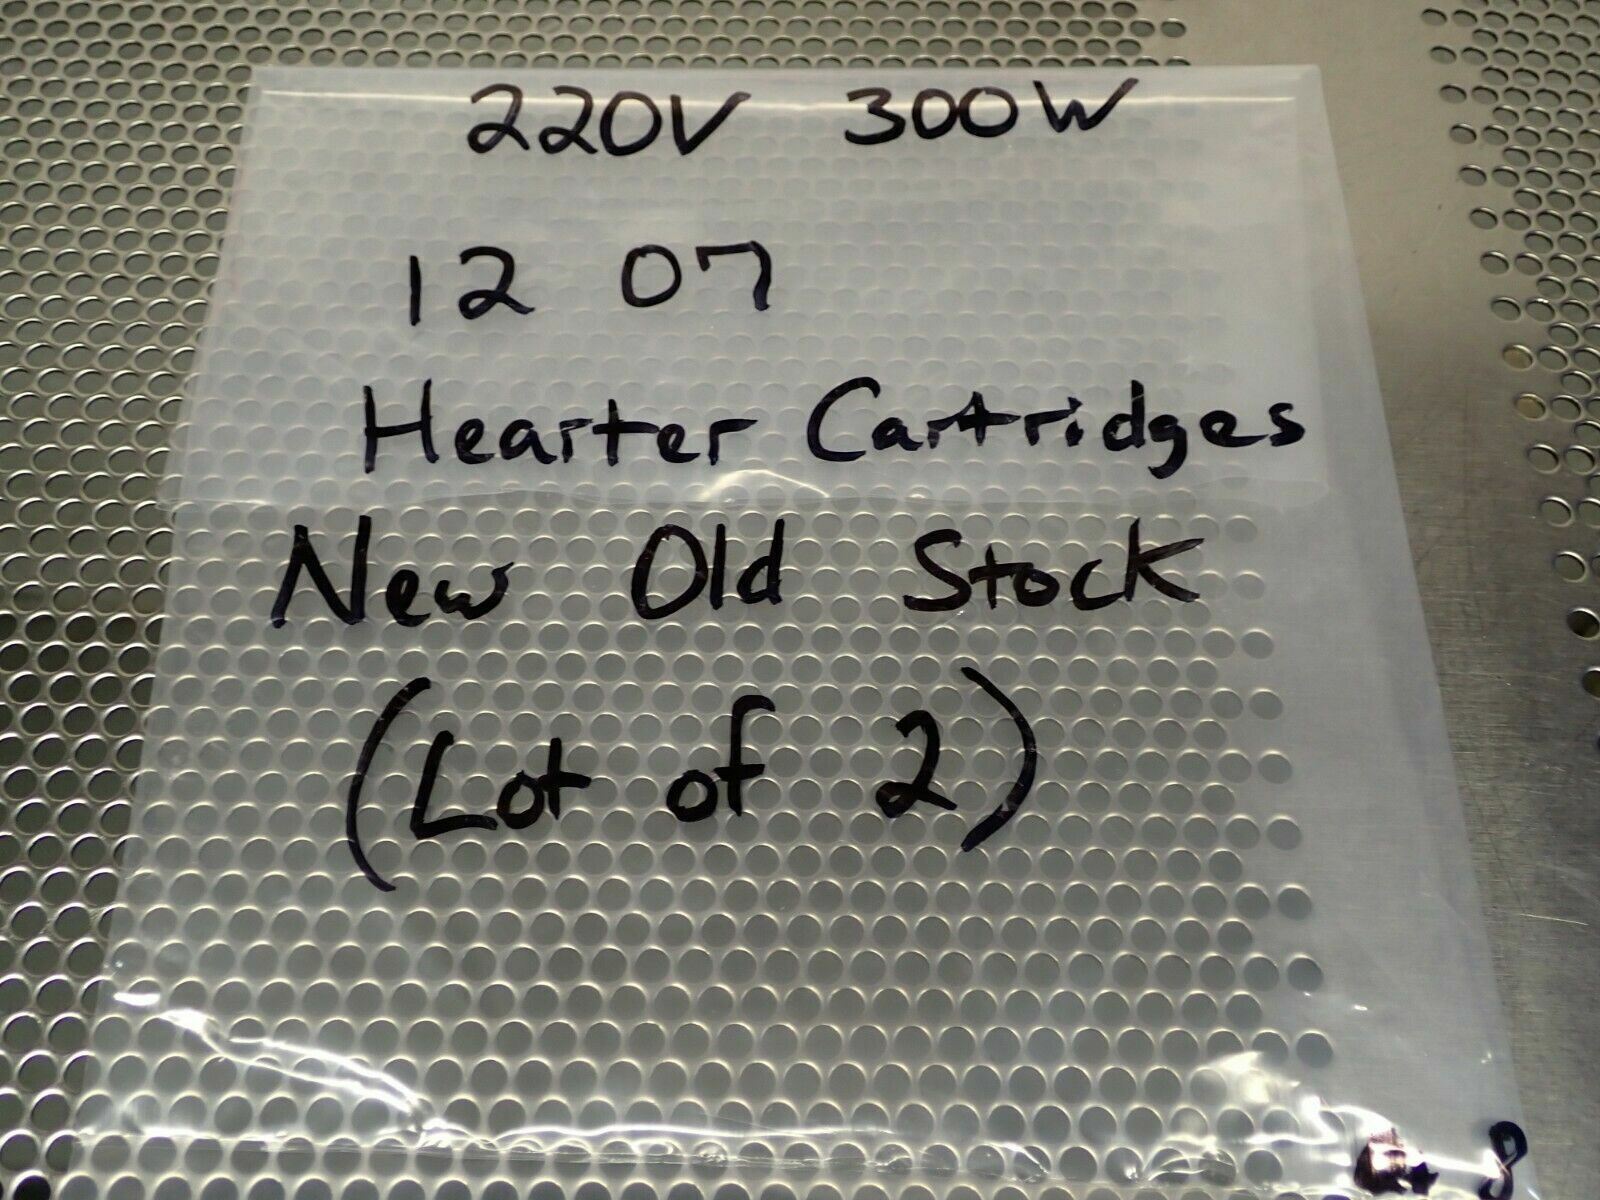 220V 300W
12 07
Hearter Cartridges
New Old Stock
(Lot of 2)
8